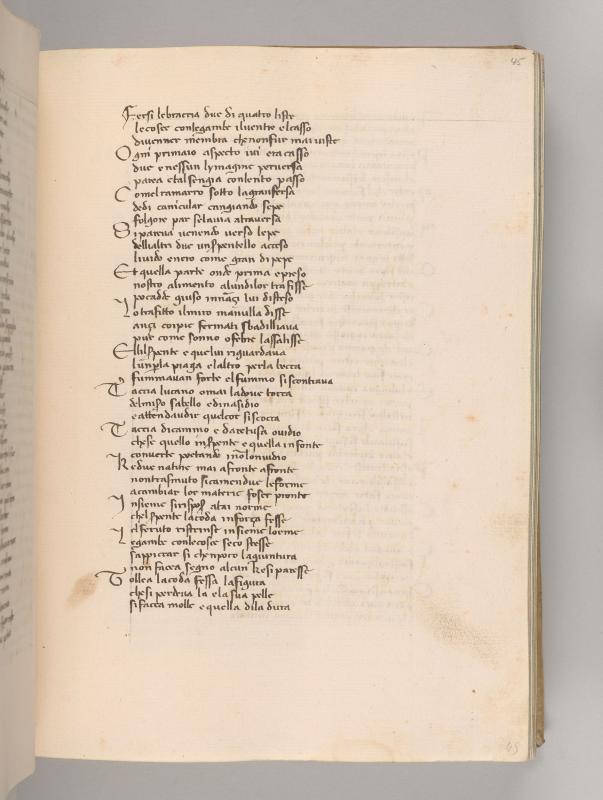 45
Fersi lebraccia due di quatro liste
lecosce conlegambe iluentre elcasso
diuenner membra chenonfur mai uiste
Ogni primaio aspecto iui era casso
due e nessun lymagine peruersa
parea etal sengia conlento passo
Comel ramarro sotto lagranfersa
dedi canicular cangiando sepe
folgore par selauia atrauersa
Si pareua uenendo uerso lepe
dellialtri due un serpentello acceso
liuido enero come gran di pepe
Et quella parte onde prima epreso
nostro alimento alundilor trafisse
pocadde giuso innanzi lui disteso
Lo trafitto ilmiro manulla disse
anzi coipie fermati sbadilliaua
pur come sonno ofebre lassalisse
Elli serpente e quelui riguardaua
lun per la piaga elaltro perla bocca
fummauan forte elfummo si scontraua
Taccia lucano omai ladoue tocca
delmiso sabello edinasidio
e attendaudir quelcor siscocca
Taccia dicammo e daretusa ouidio
chese quello inserpente e quella infonte
conuerte poetando io non lonuidio
Ke due nature mai afronte afronte
nontrasmuto sicamendue leforme
acambiar lor materie foser pronte
Insieme si rispos atai norme
chelserpente lacoda inforca fesse
el feruto ristrinse insieme lorme
Legambe conlecosce seco stesse
sappiccar si chenpoco lagiuntura
non facea segno alcun ke si paresse
Tollea lacoda fessa lafigura
chesi perdeua la ela sua pelle
sifacea molle e quella dila dura
45